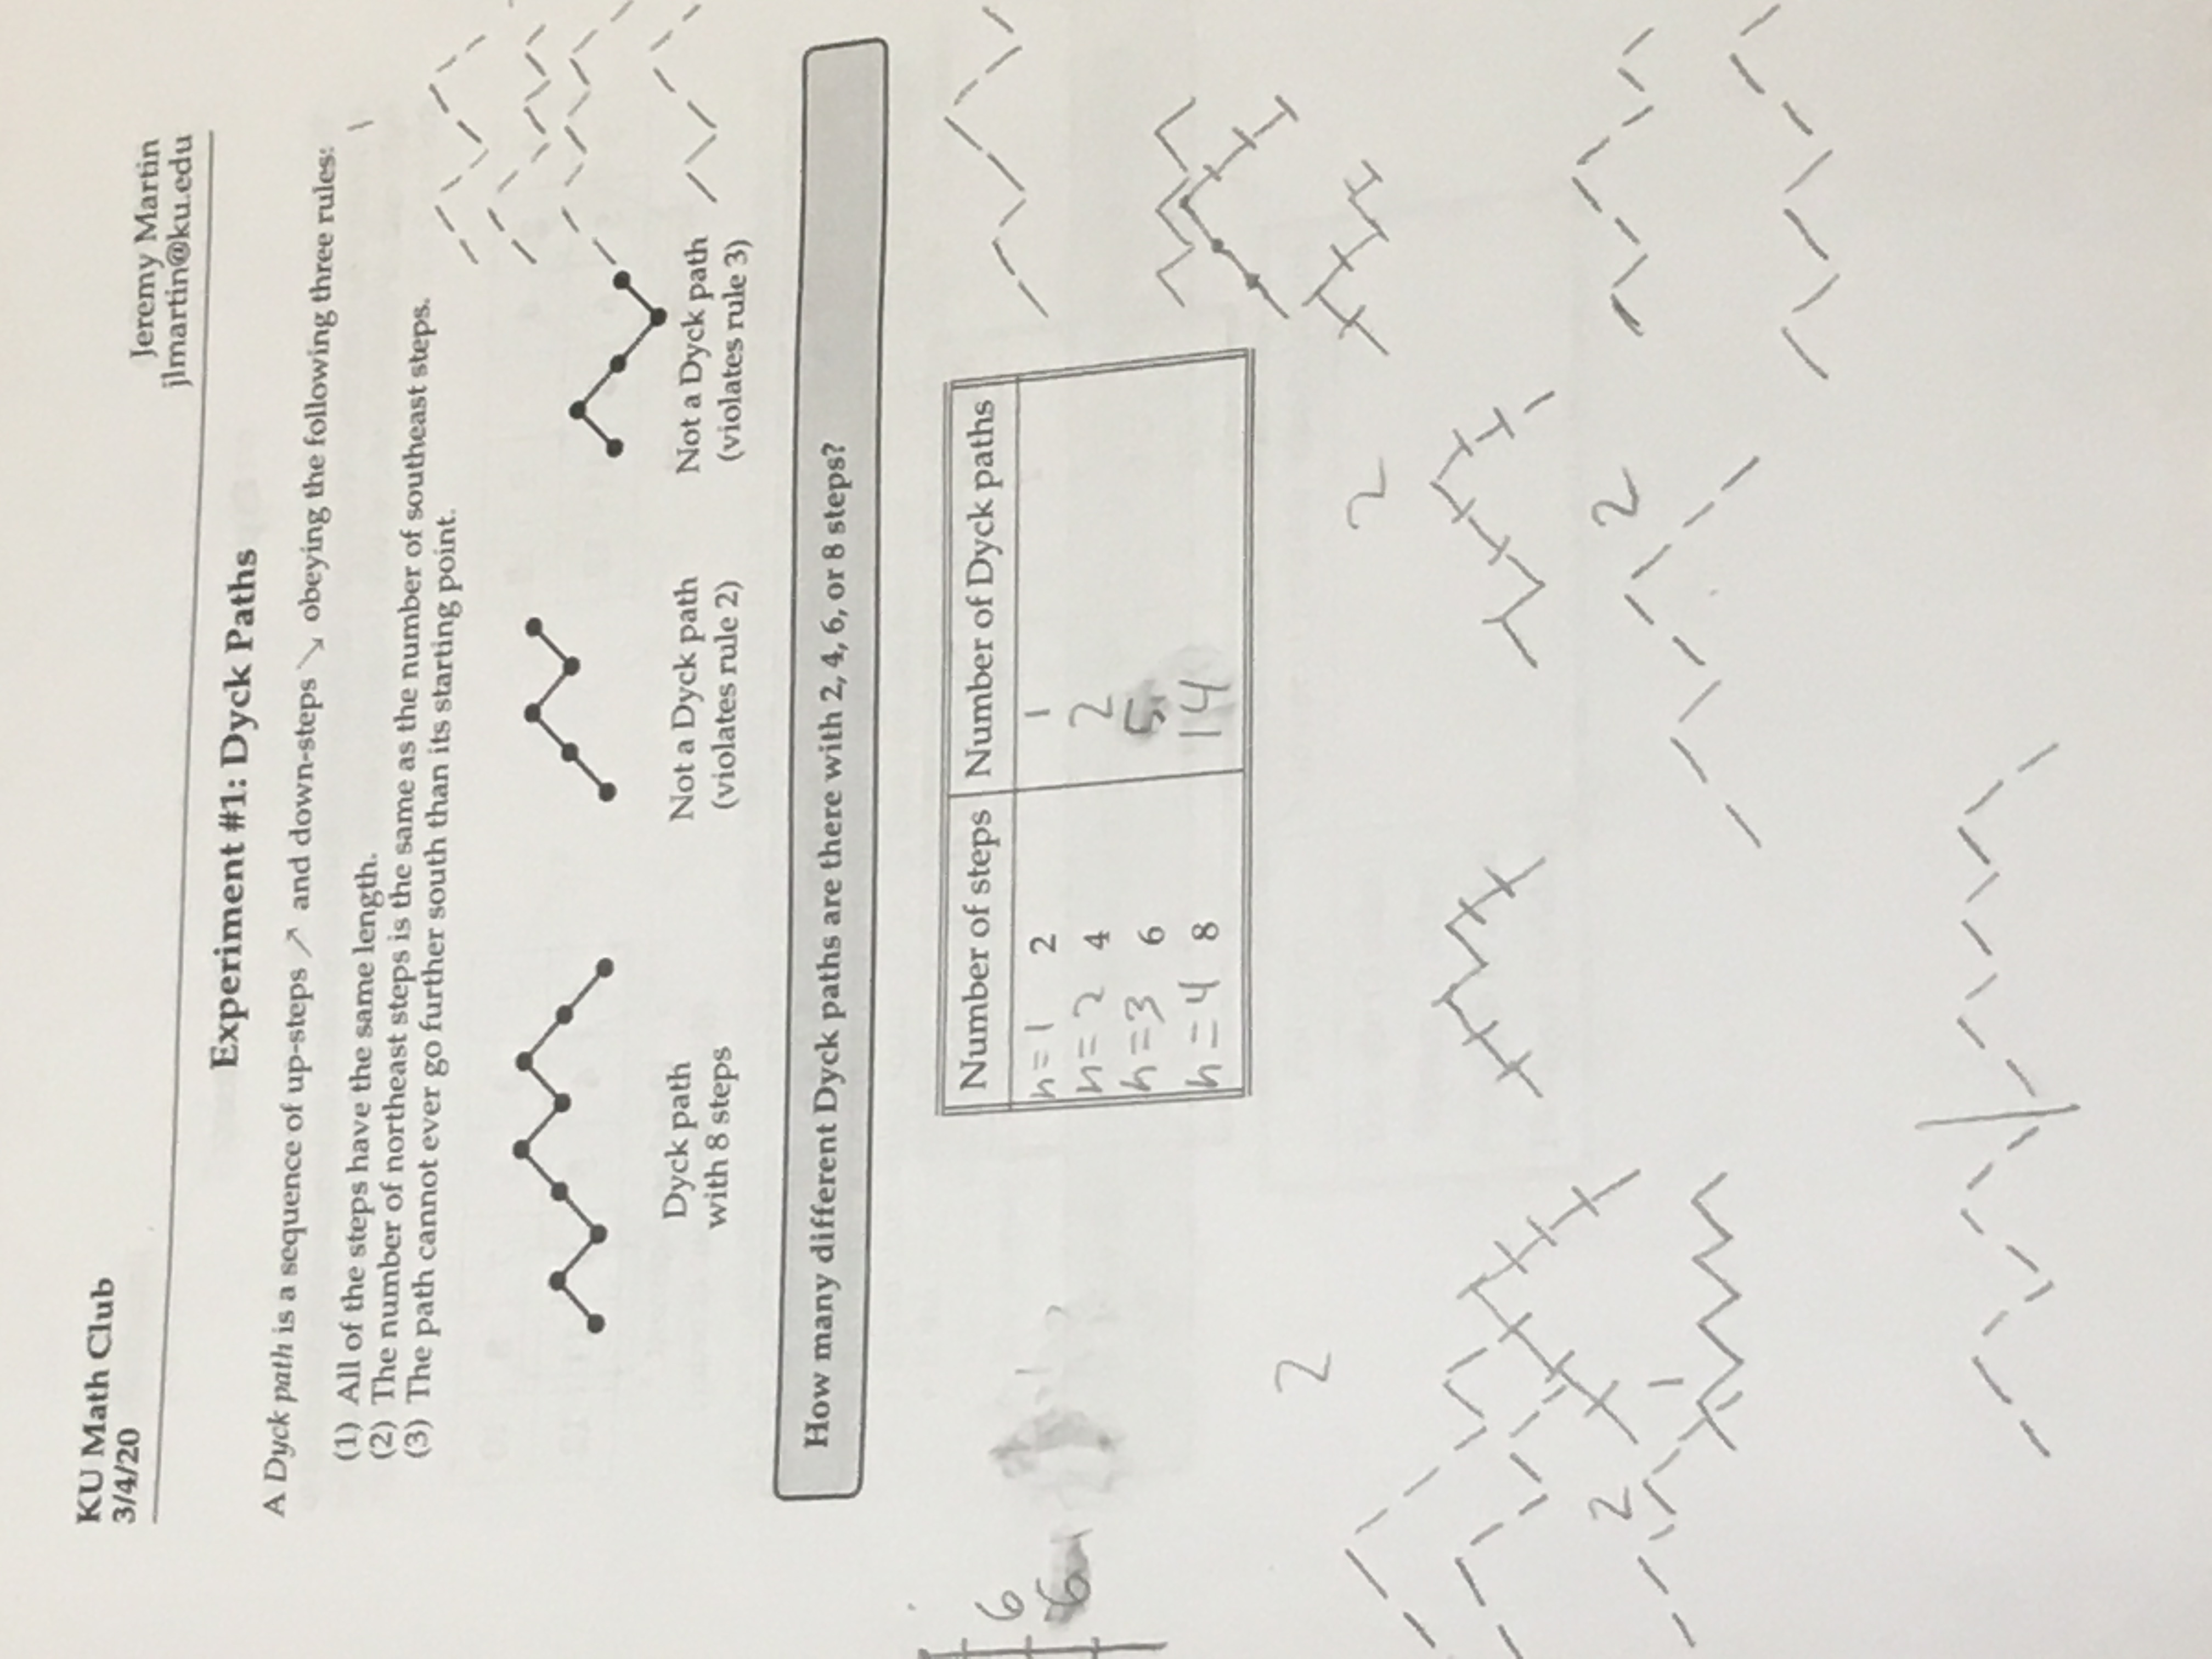 KU Math Club
3/4/20
Jeremy Martin
jlmartin@ku.edu
Experiment #1: Dyck Paths
A Dyck path is a sequence of up-steps ↗ and down-steps ↘ obeying the following three rules:
(1) All of the steps have the same length.
(2) The number of northeast steps is the same as the number of southeast steps.
(3) The path cannot ever go further south than its starting point.
Dyck path
with 8 steps
Not a Dyck path
(violates rule 2)
Not a Dyck path
(violates rule 3)
How many different Dyck paths are there with 2, 4, 6, or 8 steps?
Number of steps Number of Dyck paths
n=1 2 1
n=2 4 2
n=3 6 5
n=4 8 14
6
6
2
2
2
1
2